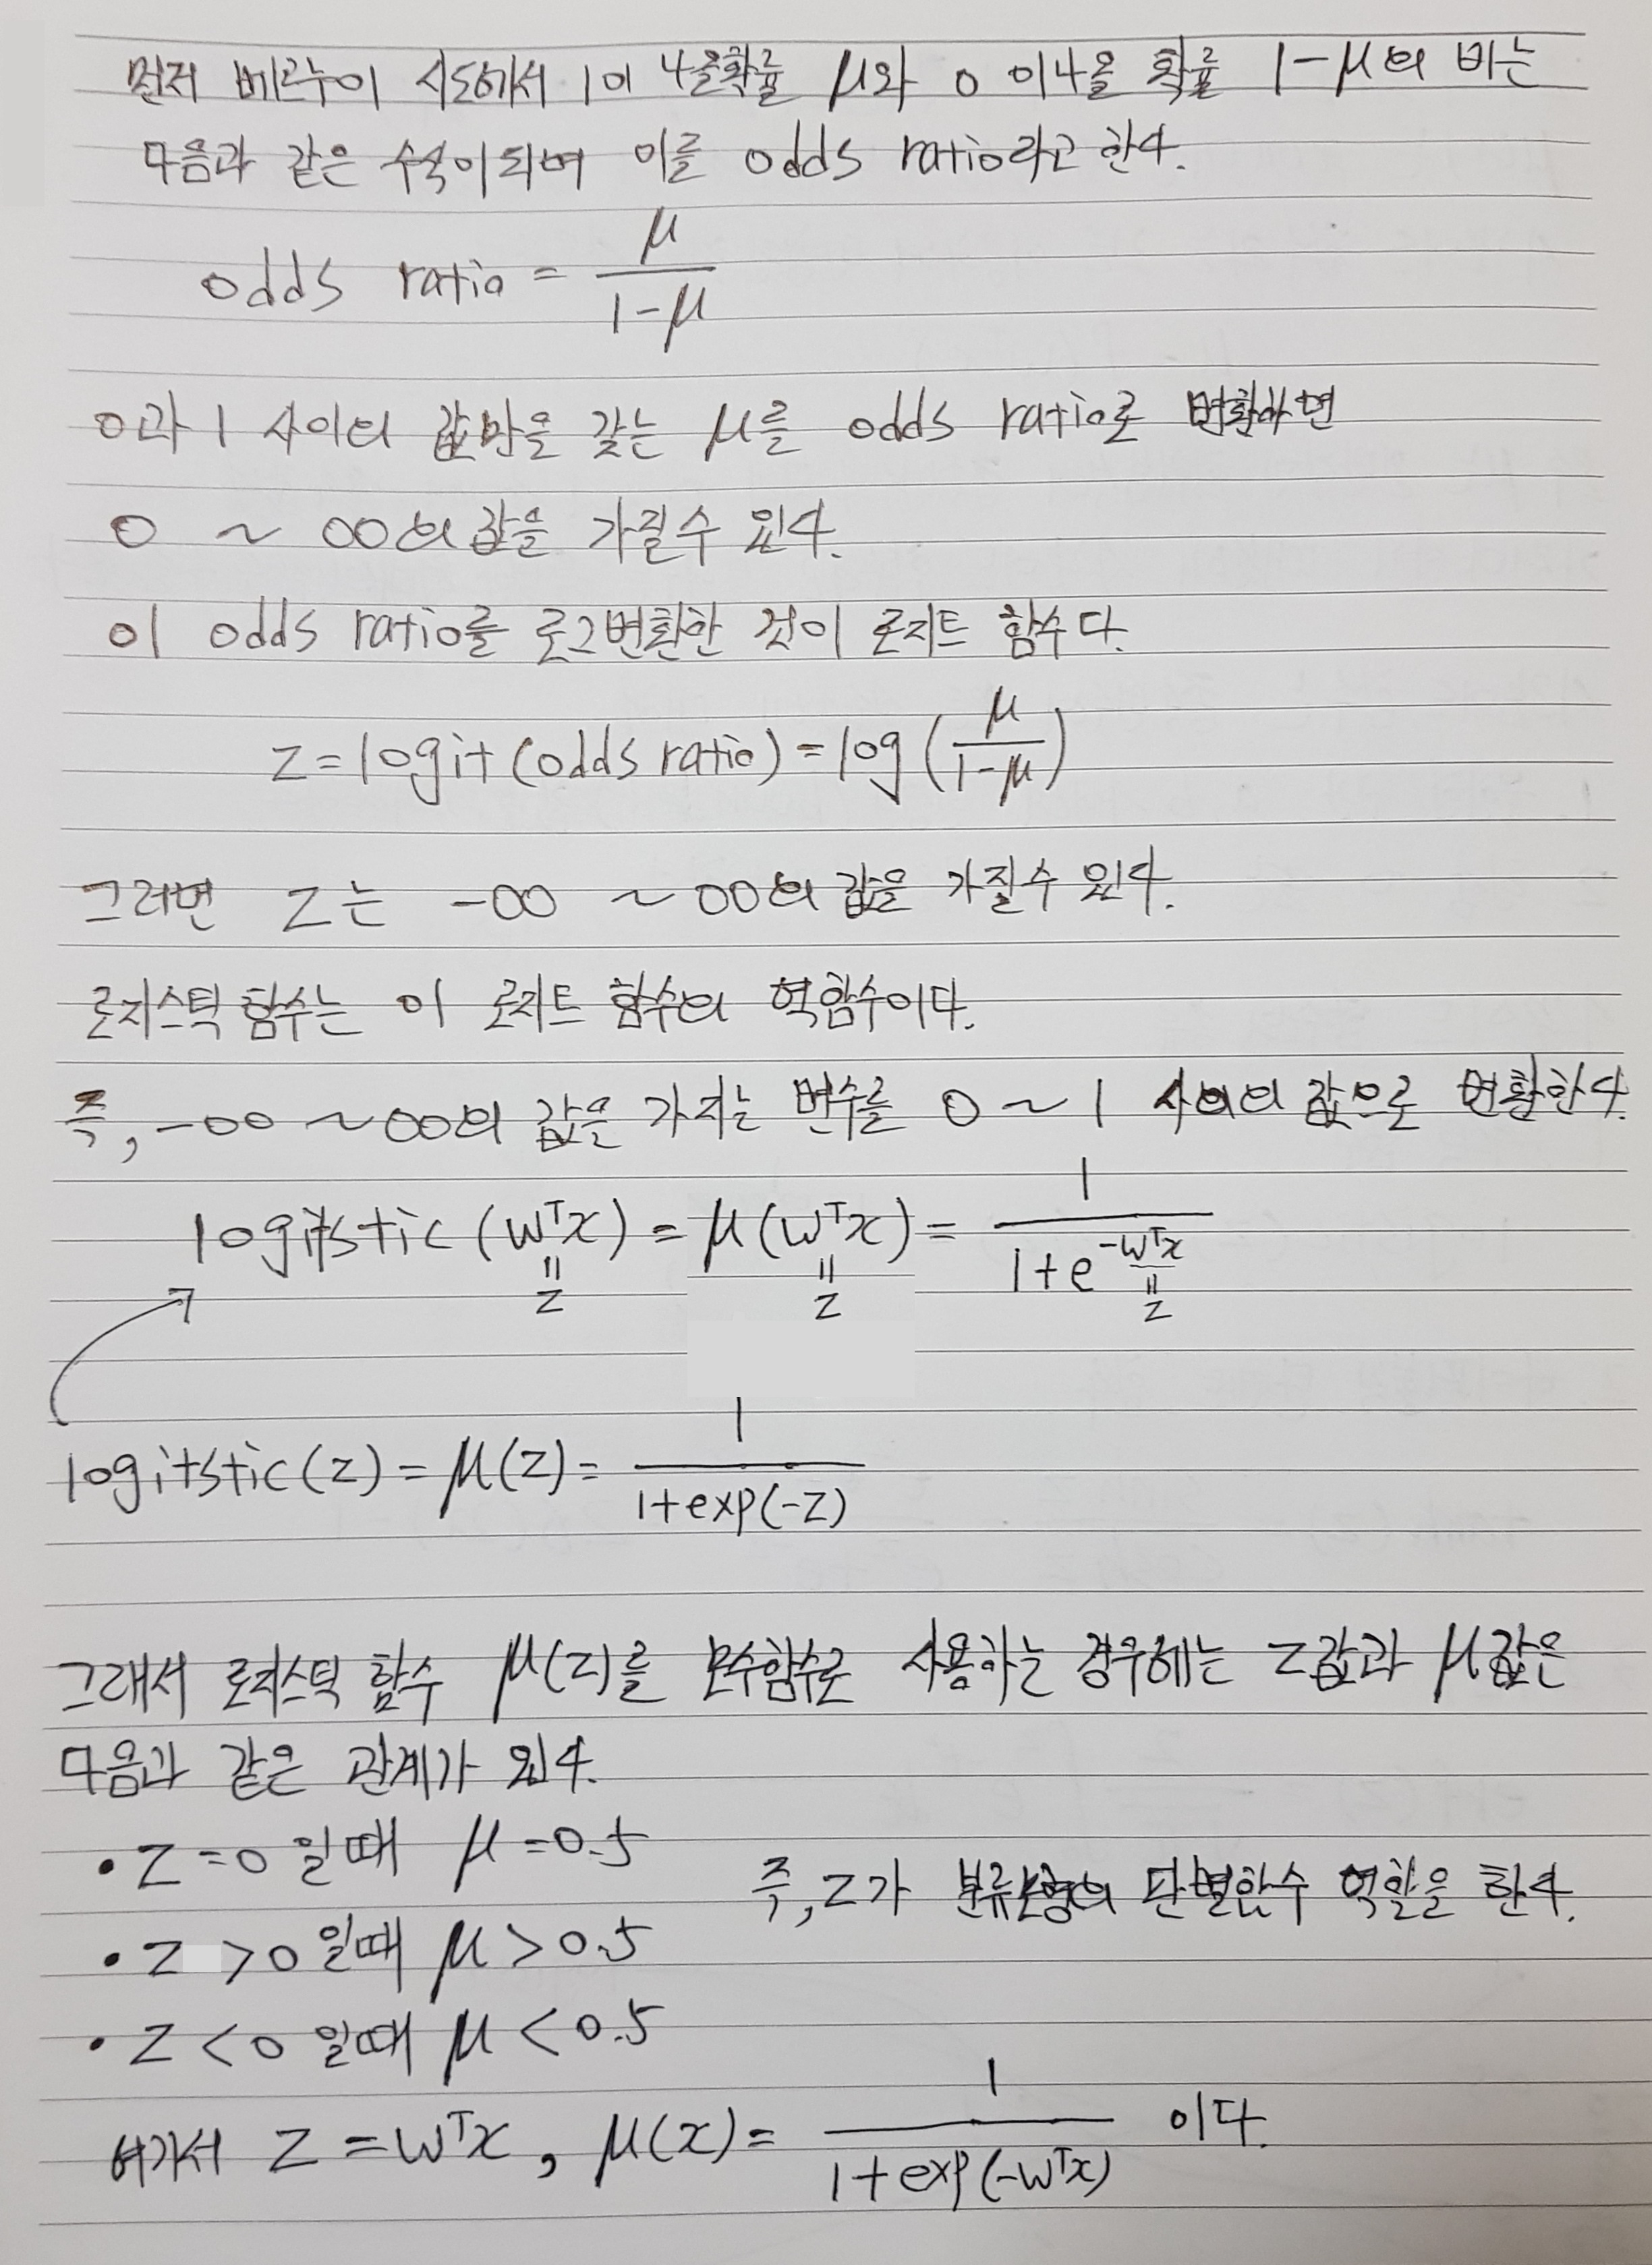 먼저 베르누이 시도에서 1이 나올확률 μ와 0 이나올 확률 1-μ의 비는
다음과 같은 수식이되며 이를 odds ratio라고 한다.
odds ratio = μ / (1-μ)
0과 1 사이의 값만을 갖는 μ를 odds ratio로 변환하면
0 ~ ∞의 값을 가질수 있다.
이 odds ratio를 로그변환한 것이 로지트 함수다.
z = logit (odds ratio) = log (μ / (1-μ))
그러면 z는 -∞ ~ ∞의 값을 가질수 있다.
로지스틱 함수는 이 로지트 함수의 역함수이다.
즉, -∞ ~ ∞의 값을 가지는 변수를 0 ~ 1 사이의 값으로 변환한다.
logitstic (wᵀx) = μ (wᵀx) = 1 / (1+e^(-wᵀx))
= z = z = z
logitstic (z) = μ(z) = 1 / (1+exp(-z))
그래서 로지스틱 함수 μ(z)를 모수함수로 사용하는 경우에는 z값과 μ값은
다음과 같은 관계가 있다.
• z=0 일때 μ=0.5
즉, z가 분류모형의 판별함수 역할을 한다.
• z >0 일때 μ > 0.5
• z < 0 일때 μ < 0.5
여기서 z = wᵀx , μ(x) = 1 / (1+exp(-wᵀx)) 이다.